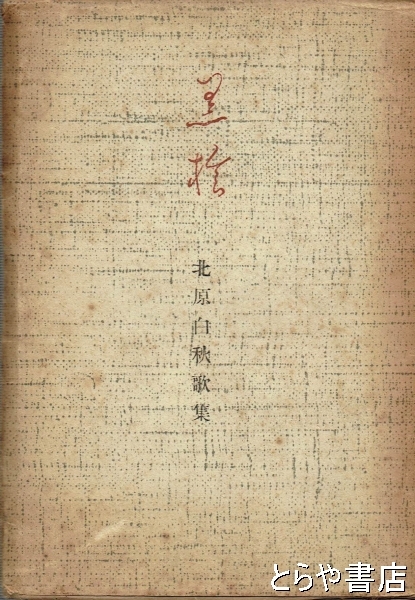 黒檜
北原白秋歌集
とらや書店